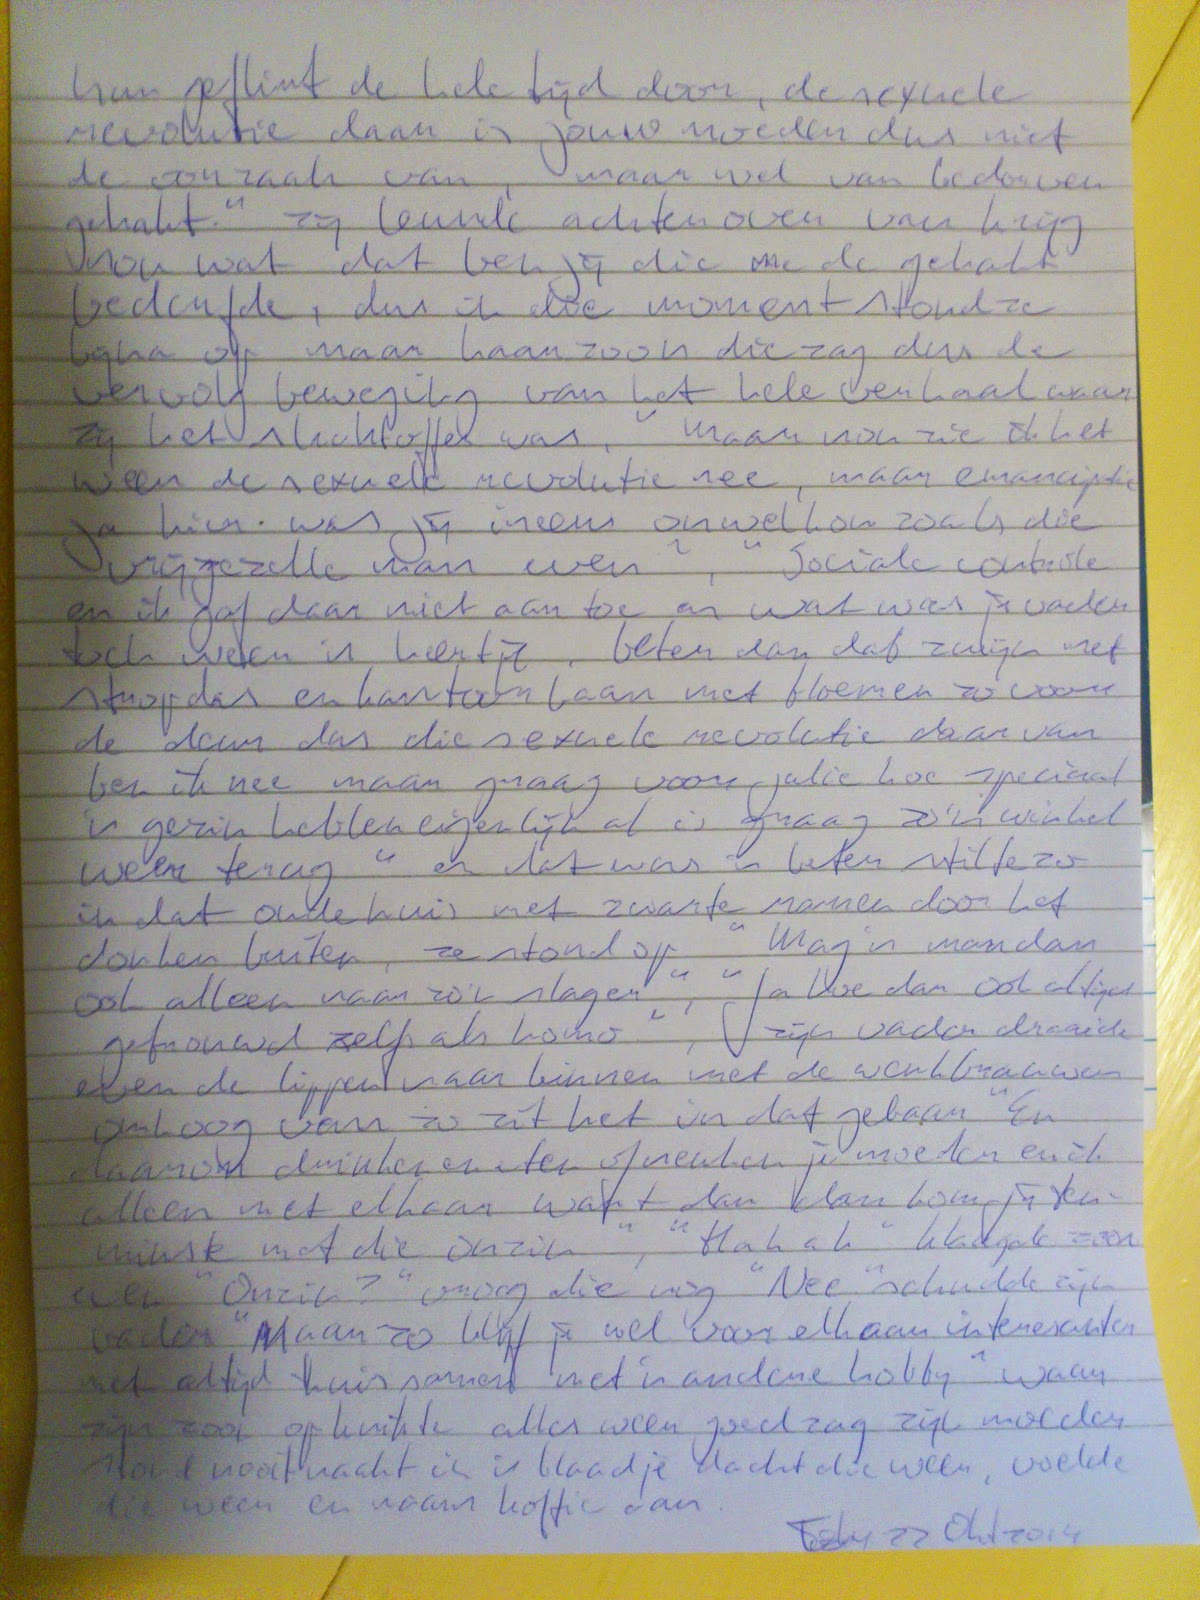 hun geflirt de hele tijd door, de sexuele
revolutie daar is jouw moeder dus niet
de oorzaak van, maar wel van bedorven
gehakt." zij leunde achterover van krijg
nou wat dat ben jij die me de gehakt
bedeufde, dus ik die moment stond ze
bijna op maar haar zoon die zag dus de
vervolg beweging van het hele verhaal waar
zij het slachtoffer was, "Maar nou zie ik het
weer de sexuele revolutie nee, maar emancipatie
ja hier was jij ineens onwelkom zoals die
vrijgezelle man even", "Sociale controle
en ik gaf daar niet aan toe en wat was je vader
toch weer 'n heertje, beter dan dat zwijn met
stropdas en kantoorbaan met bloemen zo voor
de deur dus die sexuele revolutie daar van
ben ik nee maar graag voor jullie hoe speciaal
'n gezin hebben eigenlijk al is graag zo'n winkel
weer terug" en dat was 'n beter stilte zo
in dat oude huis met zwarte ramen door het
donker buiten, ze stond op "Mag 'n man dan
ook alleen naar zo'n slager", "Ja hoe dan ook altijd
getrouwd zelfs als homo", zijn vader draaide
even de lippen naar binnen met de wenkbrauwen
omhoog van zo zit het in dat gebaar "En
daarom drinken en eten of neuken je moeder en ik
alleen met elkaar want dan kom je ten-
minste met die onzin", "Hahah" klaagde zoon
even "Onzin?" vroeg die nog "Nee" schudde zijn
vader "Maar zo blijf je wel voor elkaar interessanter
met altijd thuis samen met 'n andere hobby" waar
zijn zoon opkuikte alles weer goed zag zijn moeder
stond nooit nacht in 'n blaadje dacht die weer, voelde
die weer en nam koffie aan.
22 Okt 2014